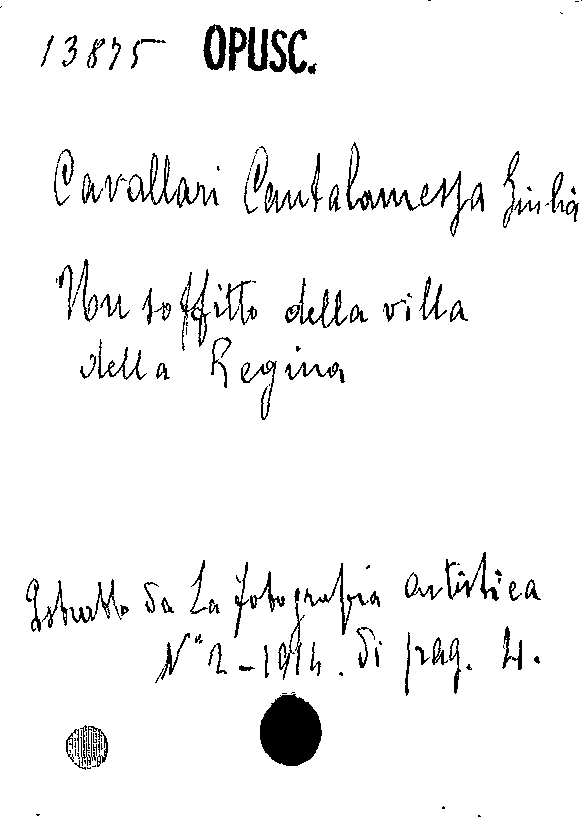 13875 OPUSC.
Cavallari Cantalamessa Giulia
Un soffitto della villa
della Regina
Estratto da La fotografia artistica
N° 2 - 1914. di pag. 4.